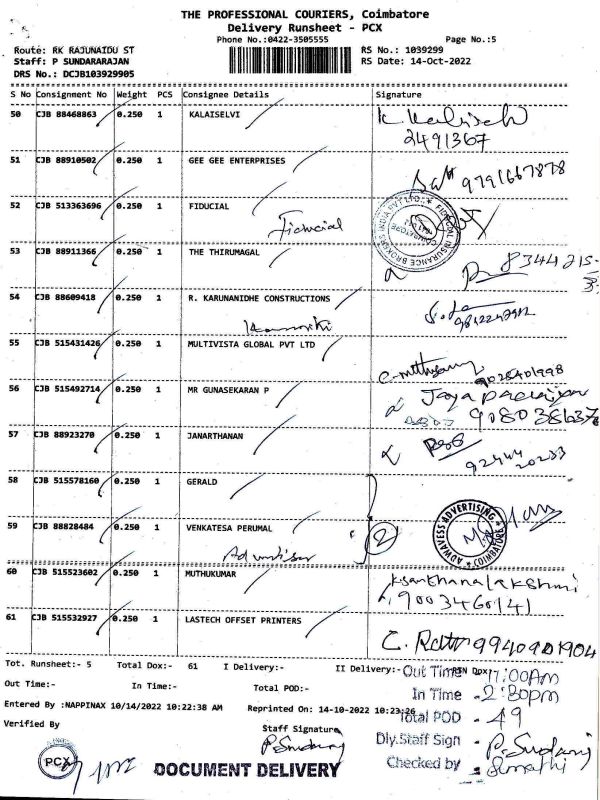 THE PROFESSIONAL COURIERS, Coimbatore
Delivery Runsheet - PCX
Phone No.:0422-3505555 Page No.:5
Route: RK RAJUNAIDU ST RS No.: 1039299
Staff: P SUNDARARAJAN RS Date: 14-Oct-2022
DRS No.: DCJB103929905
S No Consignment No Weight PCS Consignee Details Signature
50 CJB 88468863 0.250 1 KALAISELVI
2491367
51 CJB 88910502 0.250 1 GEE GEE ENTERPRISES
9791667878
52 CJB 513363696 0.250 1 FIDUCIAL
Fiducial
53 CJB 88911366 0.250 1 THE THIRUMAGAL
8344215
54 CJB 88609418 0.250 1 R. KARUNANIDHE CONSTRUCTIONS
55 CJB 515431426 0.250 1 MULTIVISTA GLOBAL PVT LTD
9028401998
56 CJB 515492714 0.250 1 MR GUNASEKARAN P
57 CJB 88923270 0.250 1 JANARTHANAN
92444 20233
58 CJB 515578160 0.250 1 GERALD
ADWAVESS ADVERTISING COIMBATORE
59 CJB 88828484 0.250 1 VENKATESA PERUMAL
2
60 CJB 515523602 0.250 1 MUTHUKUMAR
k.santhanalakshmi
9003460141
61 CJB 515532927 0.250 1 LASTECH OFFSET PRINTERS
9940901904
Tot. Runsheet:- 5 Total Dox:- 61 I Delivery:- II Delivery:-
Out Time 11:00Am
Out Time:- In Time:- Total POD:-
In Time - 2:30pm
Entered By :NAPPINAX 10/14/2022 10:22:38 AM Reprinted On : 14-10-2022 10:23:26
Total POD - 49
Verified By Staff Signature
Dly.Staff Sign - P. Sundaraj
Checked by
PCX
DOCUMENT DELIVERY